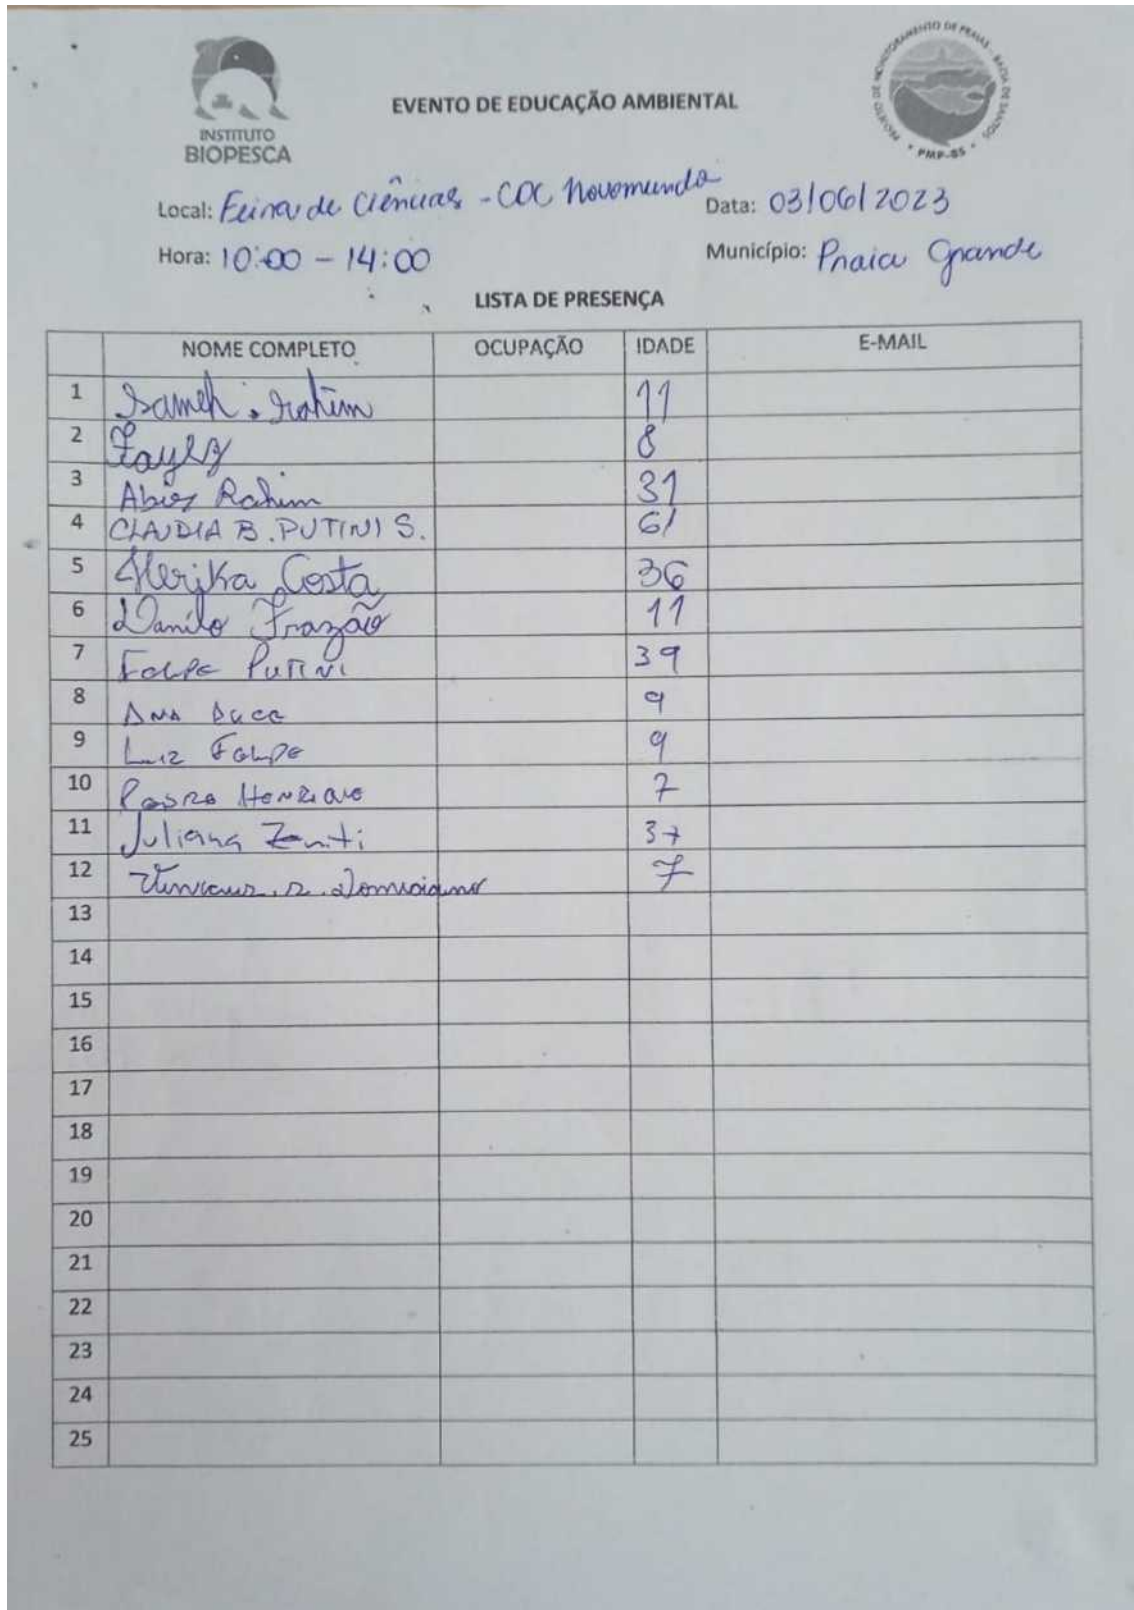 INSTITUTO
BIOPESCA
EVENTO DE EDUCAÇÃO AMBIENTAL
PROJETO DE MONITORAMENTO DE PRAIAS - BACIA DE SANTOS
• PMP-BS •
Local: Feira de Ciências - COC Novomundo Data: 03/06/2023
Hora: 10:00 - 14:00 Município: Praia Grande
LISTA DE PRESENÇA
NOME COMPLETO OCUPAÇÃO IDADE E-MAIL
1 11
2 8
3 Rahim 31
4 CLAUDIA B. PUTINI S. 61
5 Herika Costa 36
6 Danilo Frazão 11
7 Felipe Putini 39
8 Ana 9
9 Luiz Felipe 9
10 Pedro Henrique 7
11 Juliana 37
12 7
13
14
15
16
17
18
19
20
21
22
23
24
25